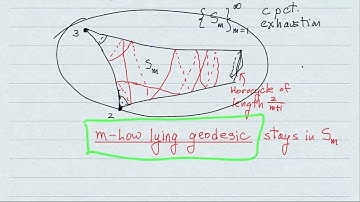 {S_m}_{m=1}^∞ cpct. exhaustion
3
S_m
Horocycle of
length 2/m+1
2
m-how lying geodesic stays in S_m